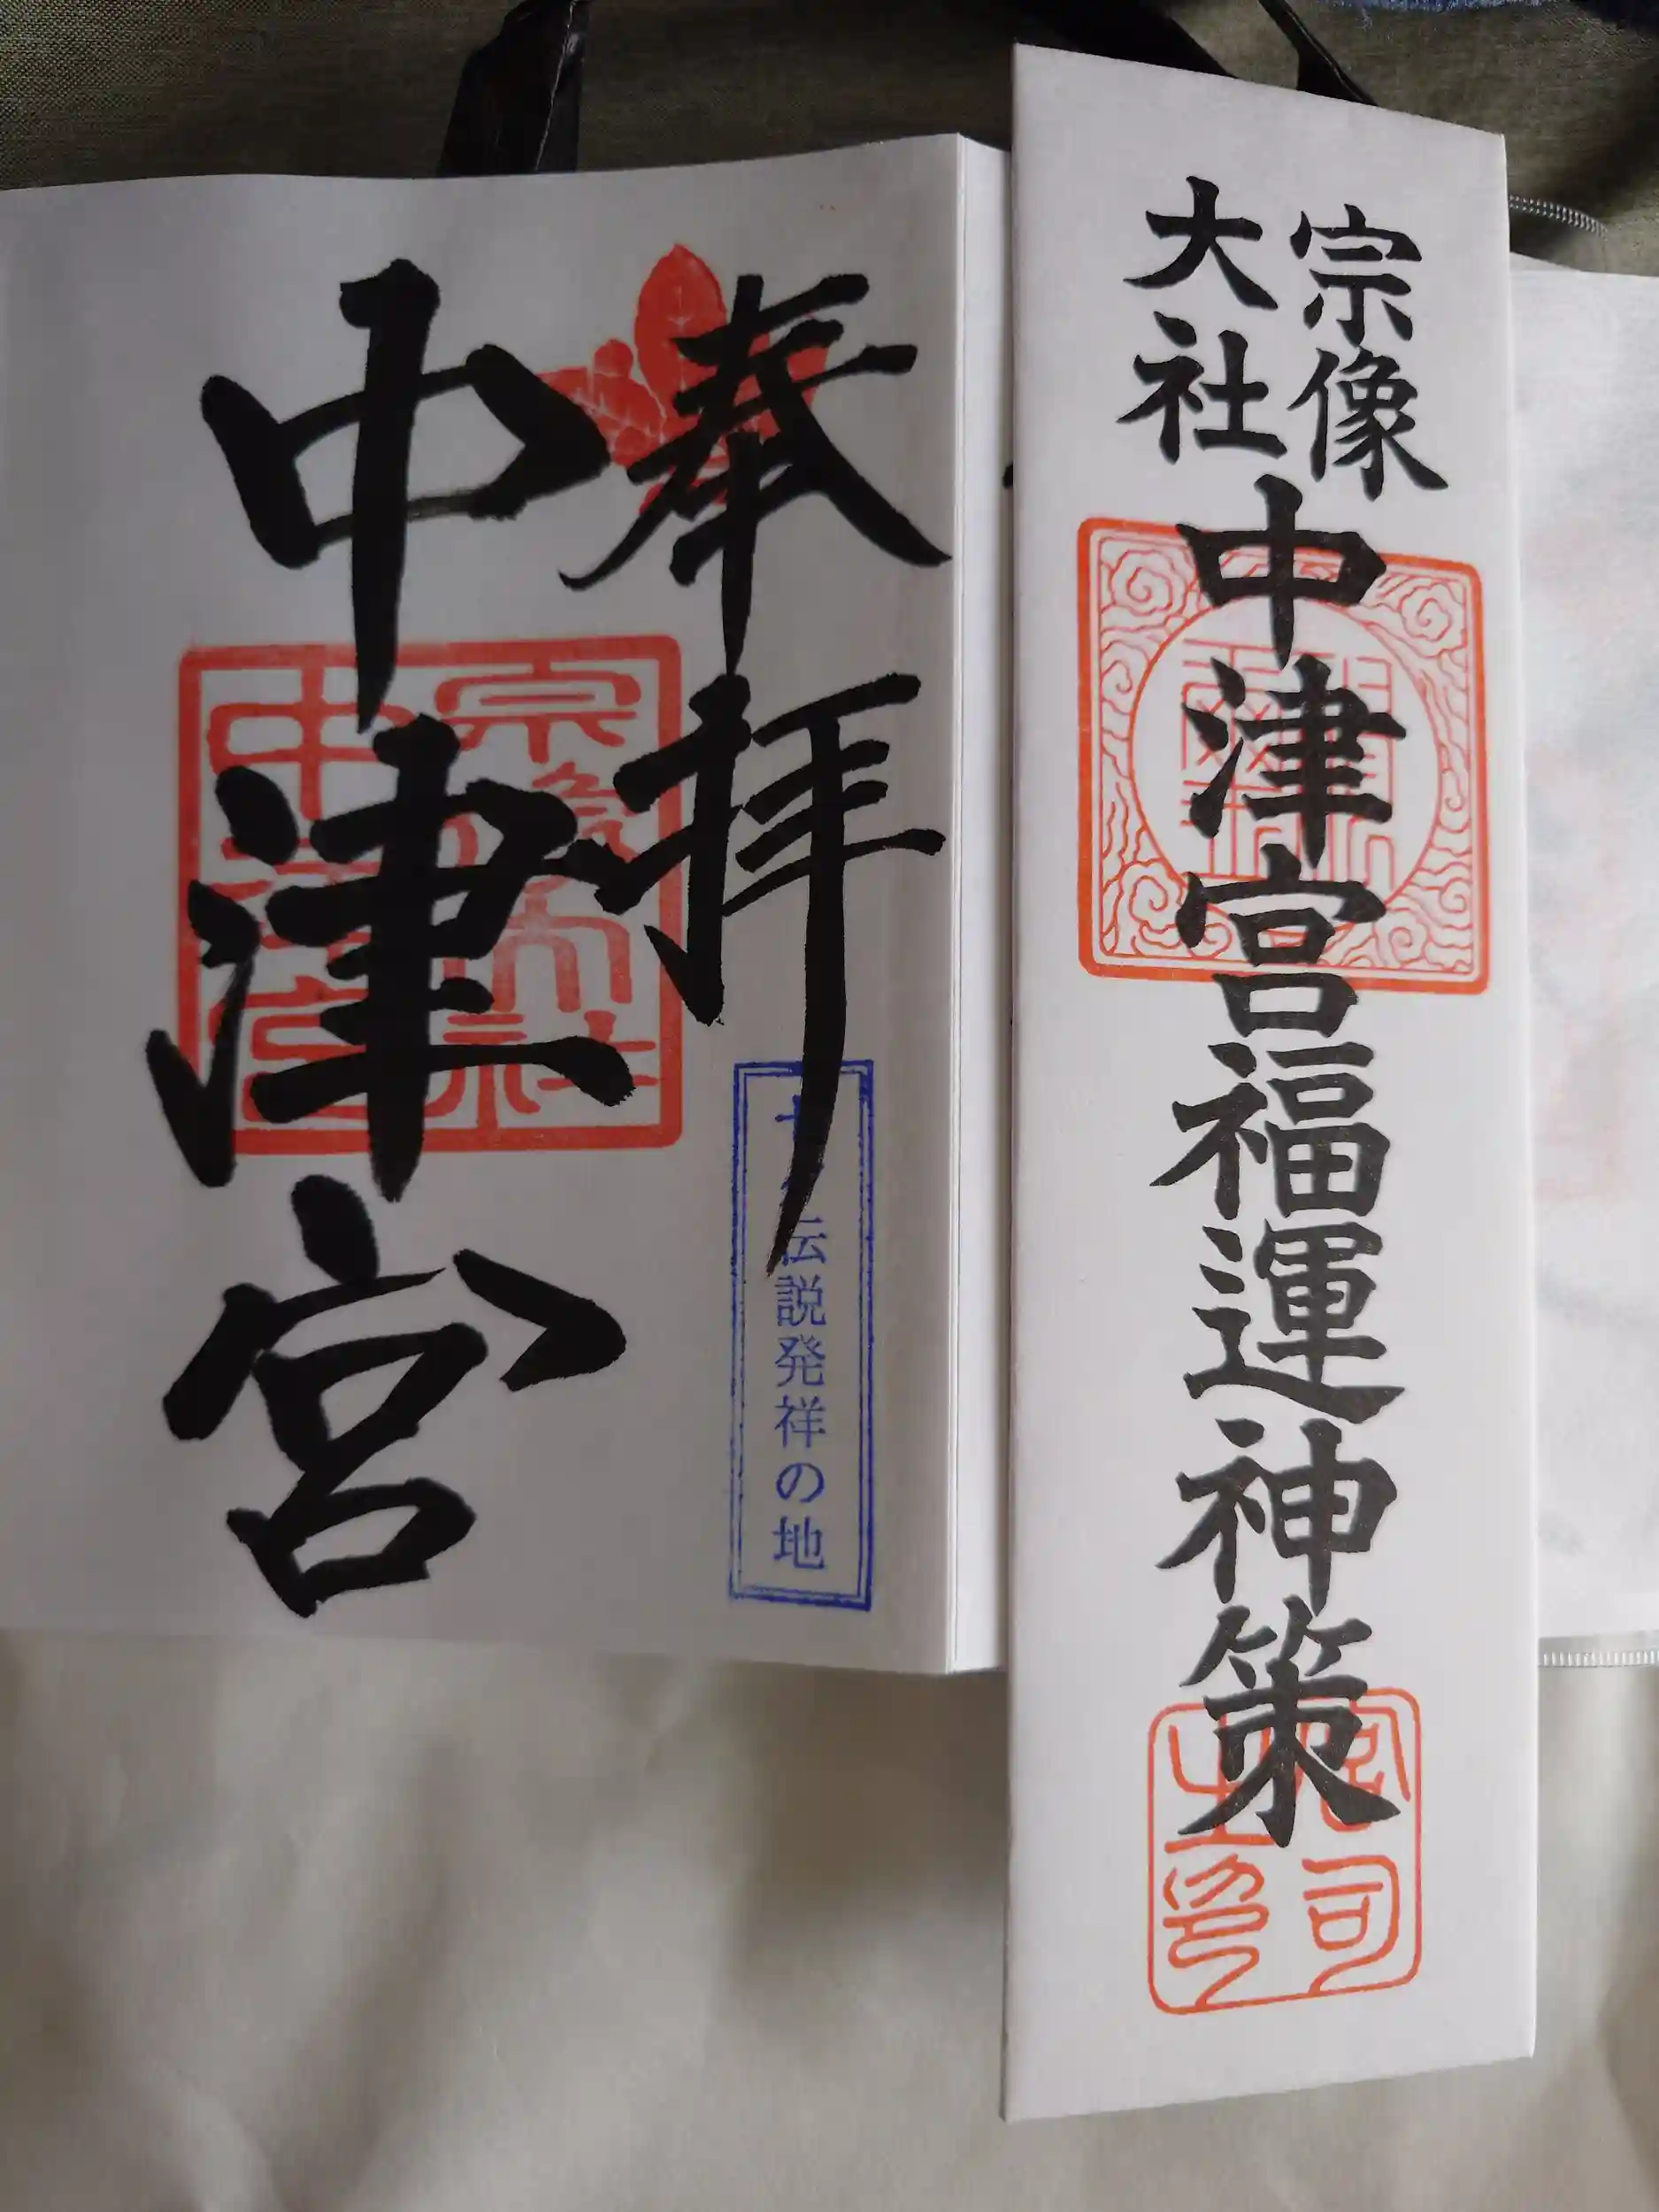 宗像
大社
中津宮福運神策
奉拝
伝説発祥の地
中津宮
宗像大社
中津宮